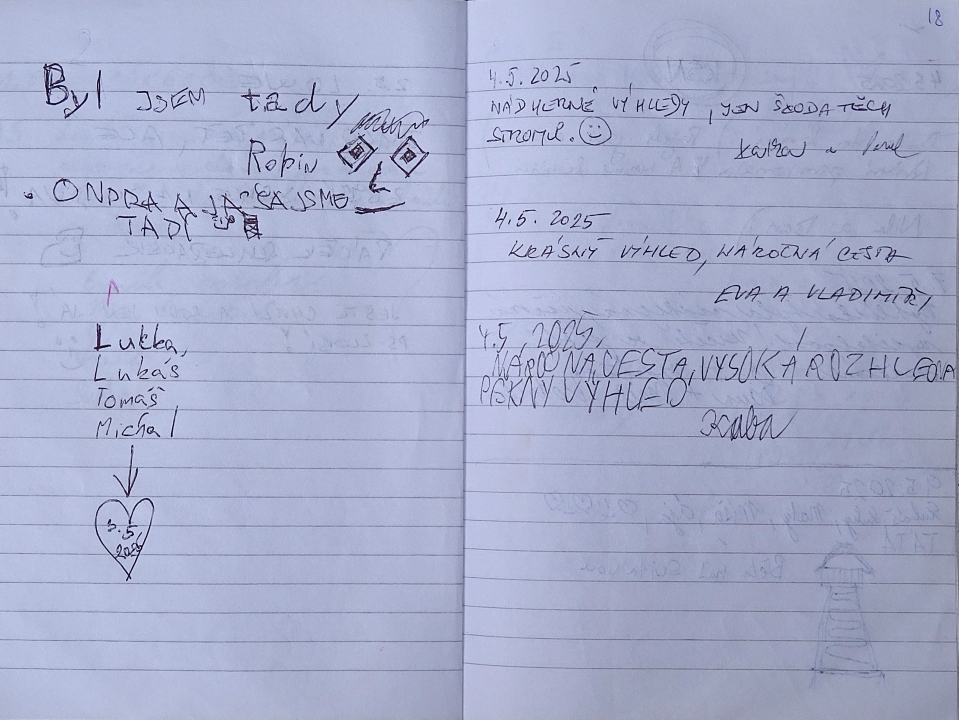 Byl JSEM tady
Robin
. ONDRA A JÁ JSME
TADY
Lukka,
Lukáš
Tomáš
Michal
3.5.
2025
18
4.5. 2025
NÁDHERNÉ VÝHLEDY, JEN ŠKODA TĚCH
STROMŮ. ☺
a Pavel
4.5. 2025
KRÁSNÝ VÝHLED, NÁROČNÁ CESTA
EVA A VLADIMÍR,
4.5, 2025,
NÁROČNA CESTA, VYSOKÁ ROZHLEDNA
PĚKNY VÝHLED
Kuba